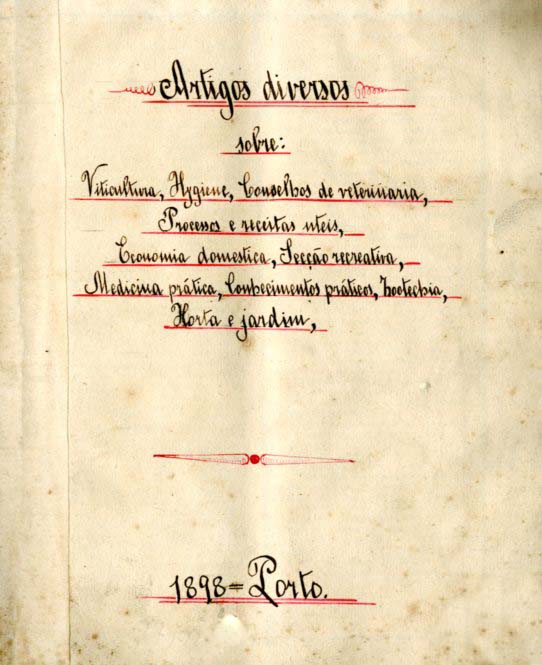 Artigos diversos
sobre:
Viticultura, Hygiene, Conselhos de veterinaria,
Processos e receitas uteis,
Economia domestica, Secção recreativa,
Medicina prática, Conhecimentos práticos, Zootechia,
Horta e jardim,
1898=Porto.